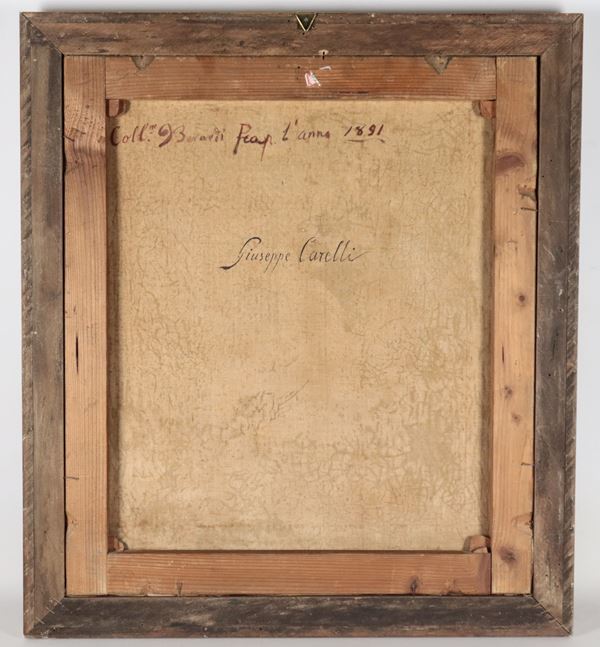 Coll.ⁿᵉ Berardi l'anno 1891
Giuseppe Carelli